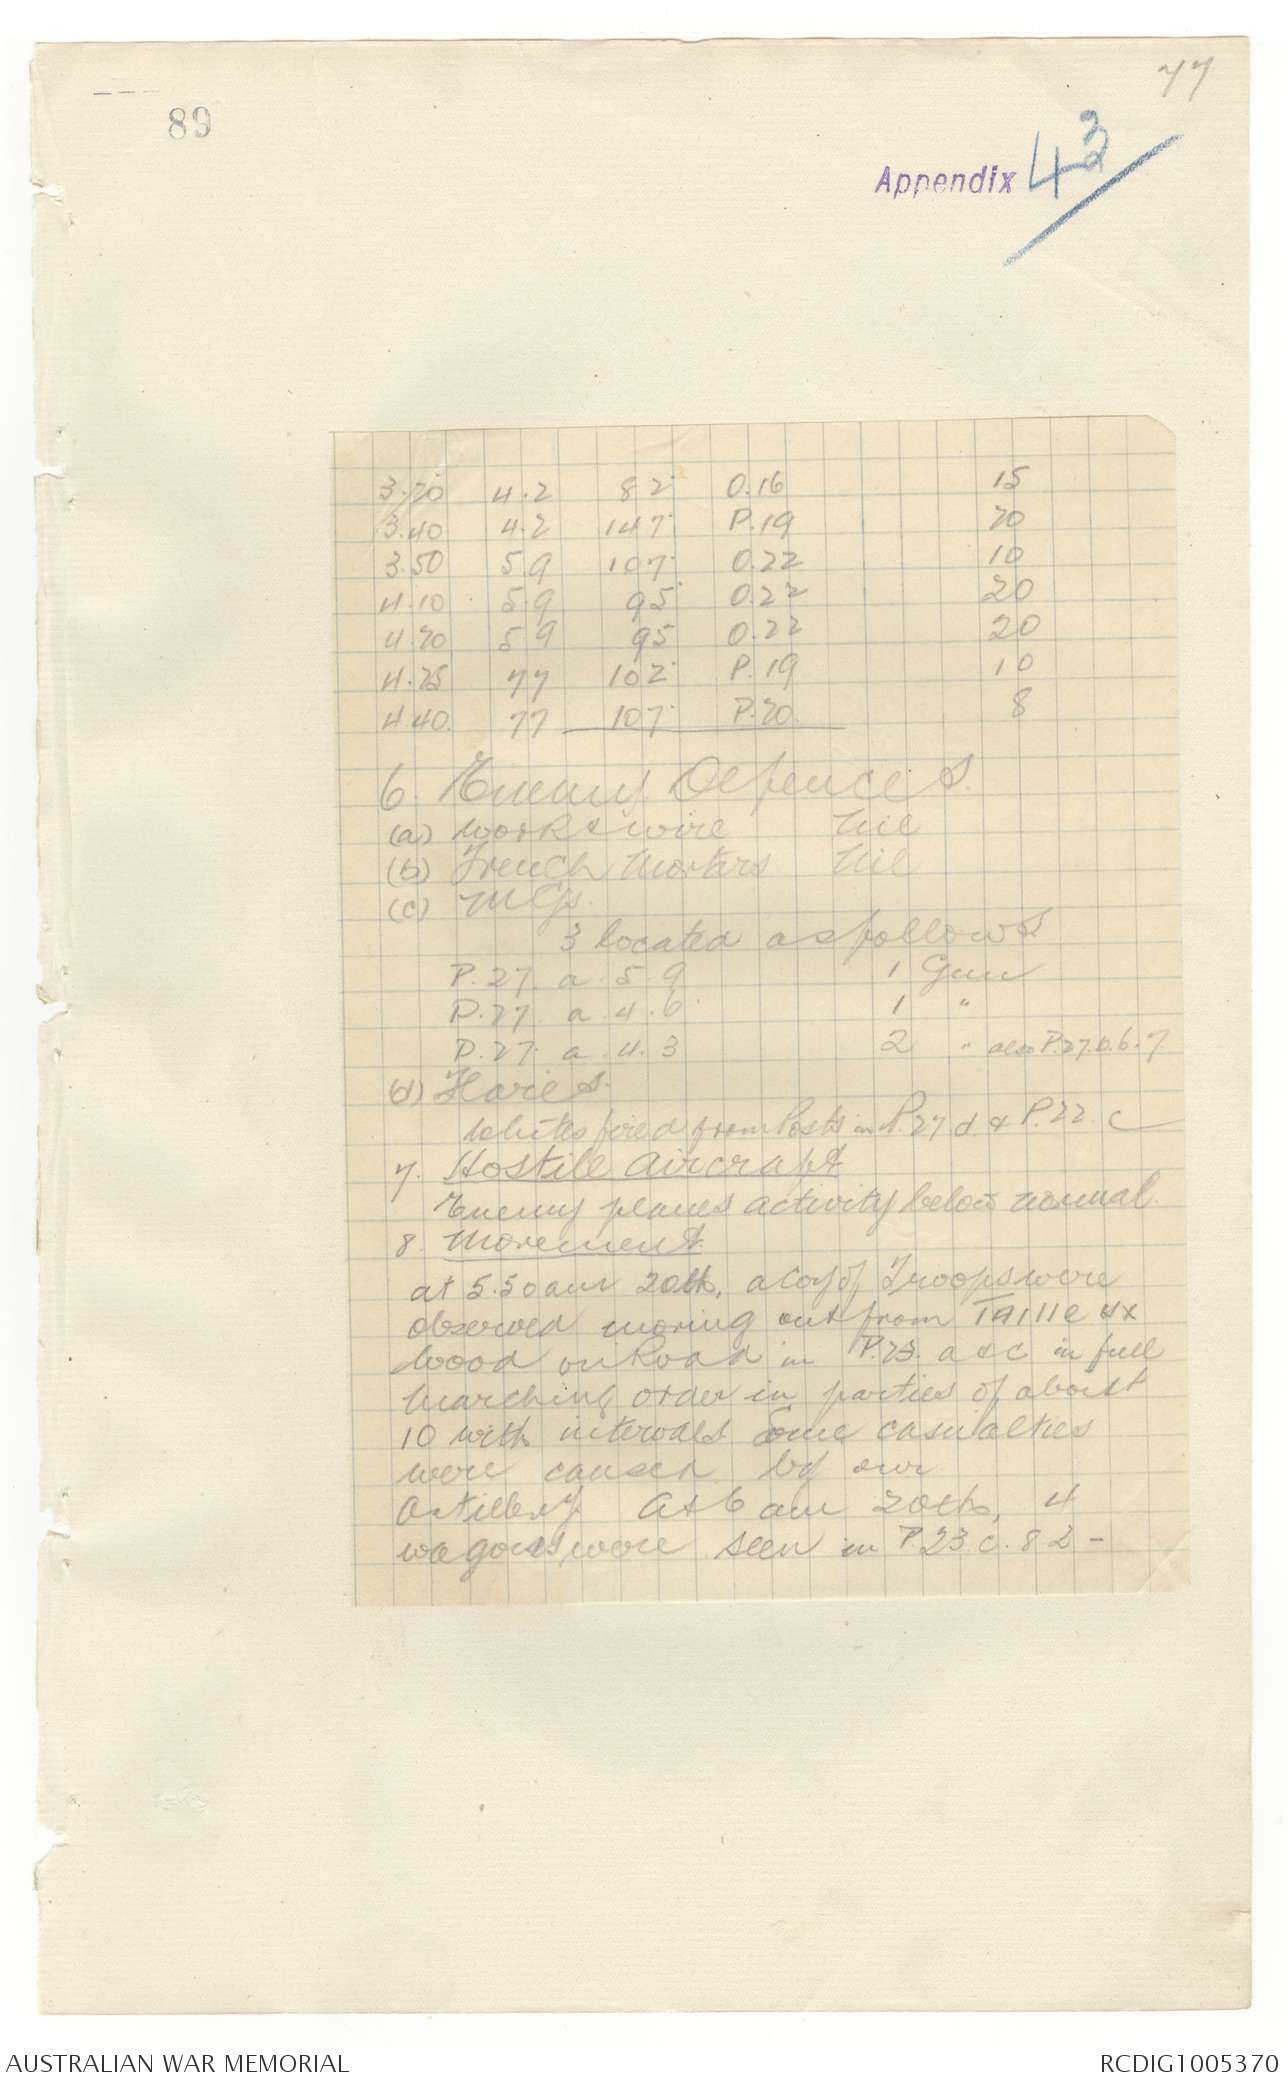 77
89
Appendix 43
3.20 4.2 82° O.16 15
3.40 4.2 147° P.19 20
3.50 5.9 107° O.22 10
4.10 5.9 95° O.22 20
4.20 5.9 95 O.22 20
4.25 77 102° P.19 10
4.40. 77 107° P.20. 8
6. Enemy Defences.
(a) Work & wire Nil
(b) Trench Mortars Nil
(c) M Gs.
3 located as follows
P.27. a. 5.9 1 Gun
P.27. a. 4.6 1 "
P.27. a. 4.3 2 " also P.27.b.6.7
(d) Flares.
Whites fired from Posts in P.27 d. & P.22. c
7. Hostile Aircraft
Enemy planes activity below normal.
8. Movement.
at 5.50 am 20th, a Coy of Troops were
observed moving out from Taille
Wood on Road in P.23. a & c in full
marching order in parties of about
10 with intervals Some casualties
were caused by our
Artillery At 6 am 20th, 4
wagons were seen in P.23.c.82 -
AUSTRALIAN WAR MEMORIAL
RCDIG1005370